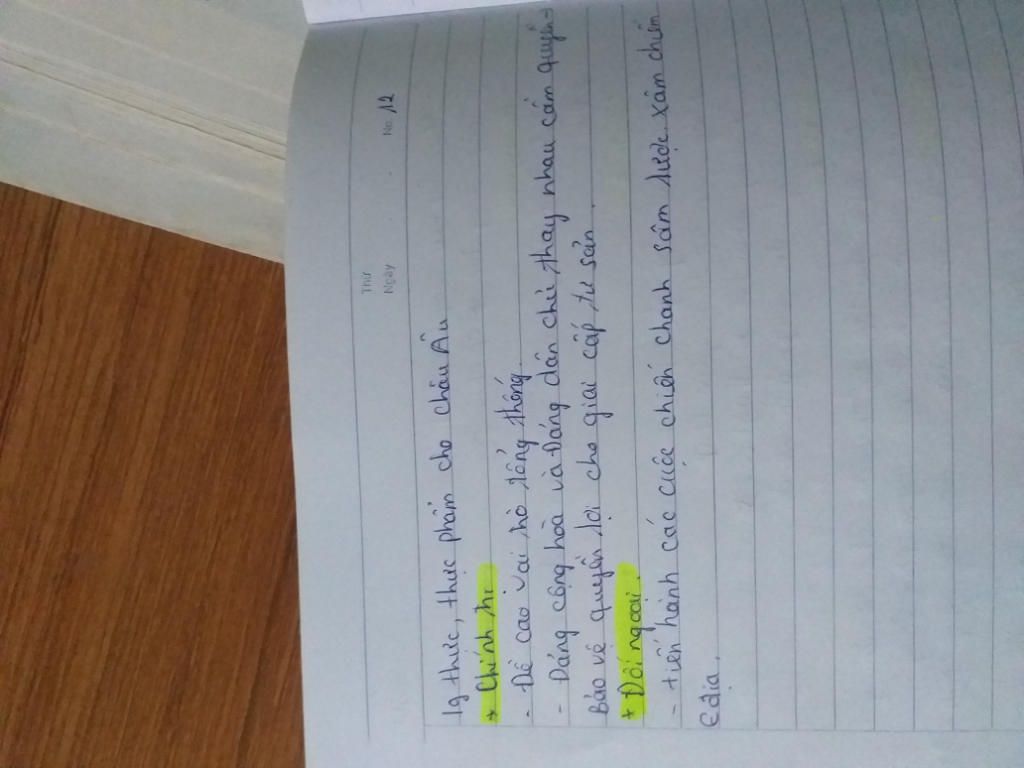 Thứ
Ngày
No. 12
lg thực, thực phẩm cho châu Âu
* Chính trị
- Đề cao vai trò tổng thống.
- Đảng cộng hoà và Đảng dân chủ thay nhau cầm quyền -
bảo vệ quyền lợi cho giai cấp tư sản.
* Đối ngoại.
- tiến hành các cuộc chiến chanh sâm lược. xâm chiếm
€ địa.